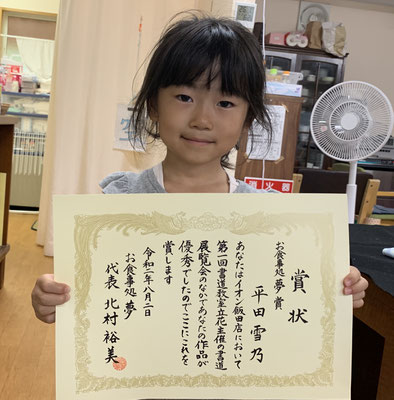 賞状
お食事処 夢賞
平田雪乃
あなたはイオン飯田店において
第一回書道教室立花主催の書道
展覧会のなかであなたの作品が
優秀でしたのでここにこれを
賞します
令和二年八月二日
お食事処 夢
代表 北村裕美
消火器